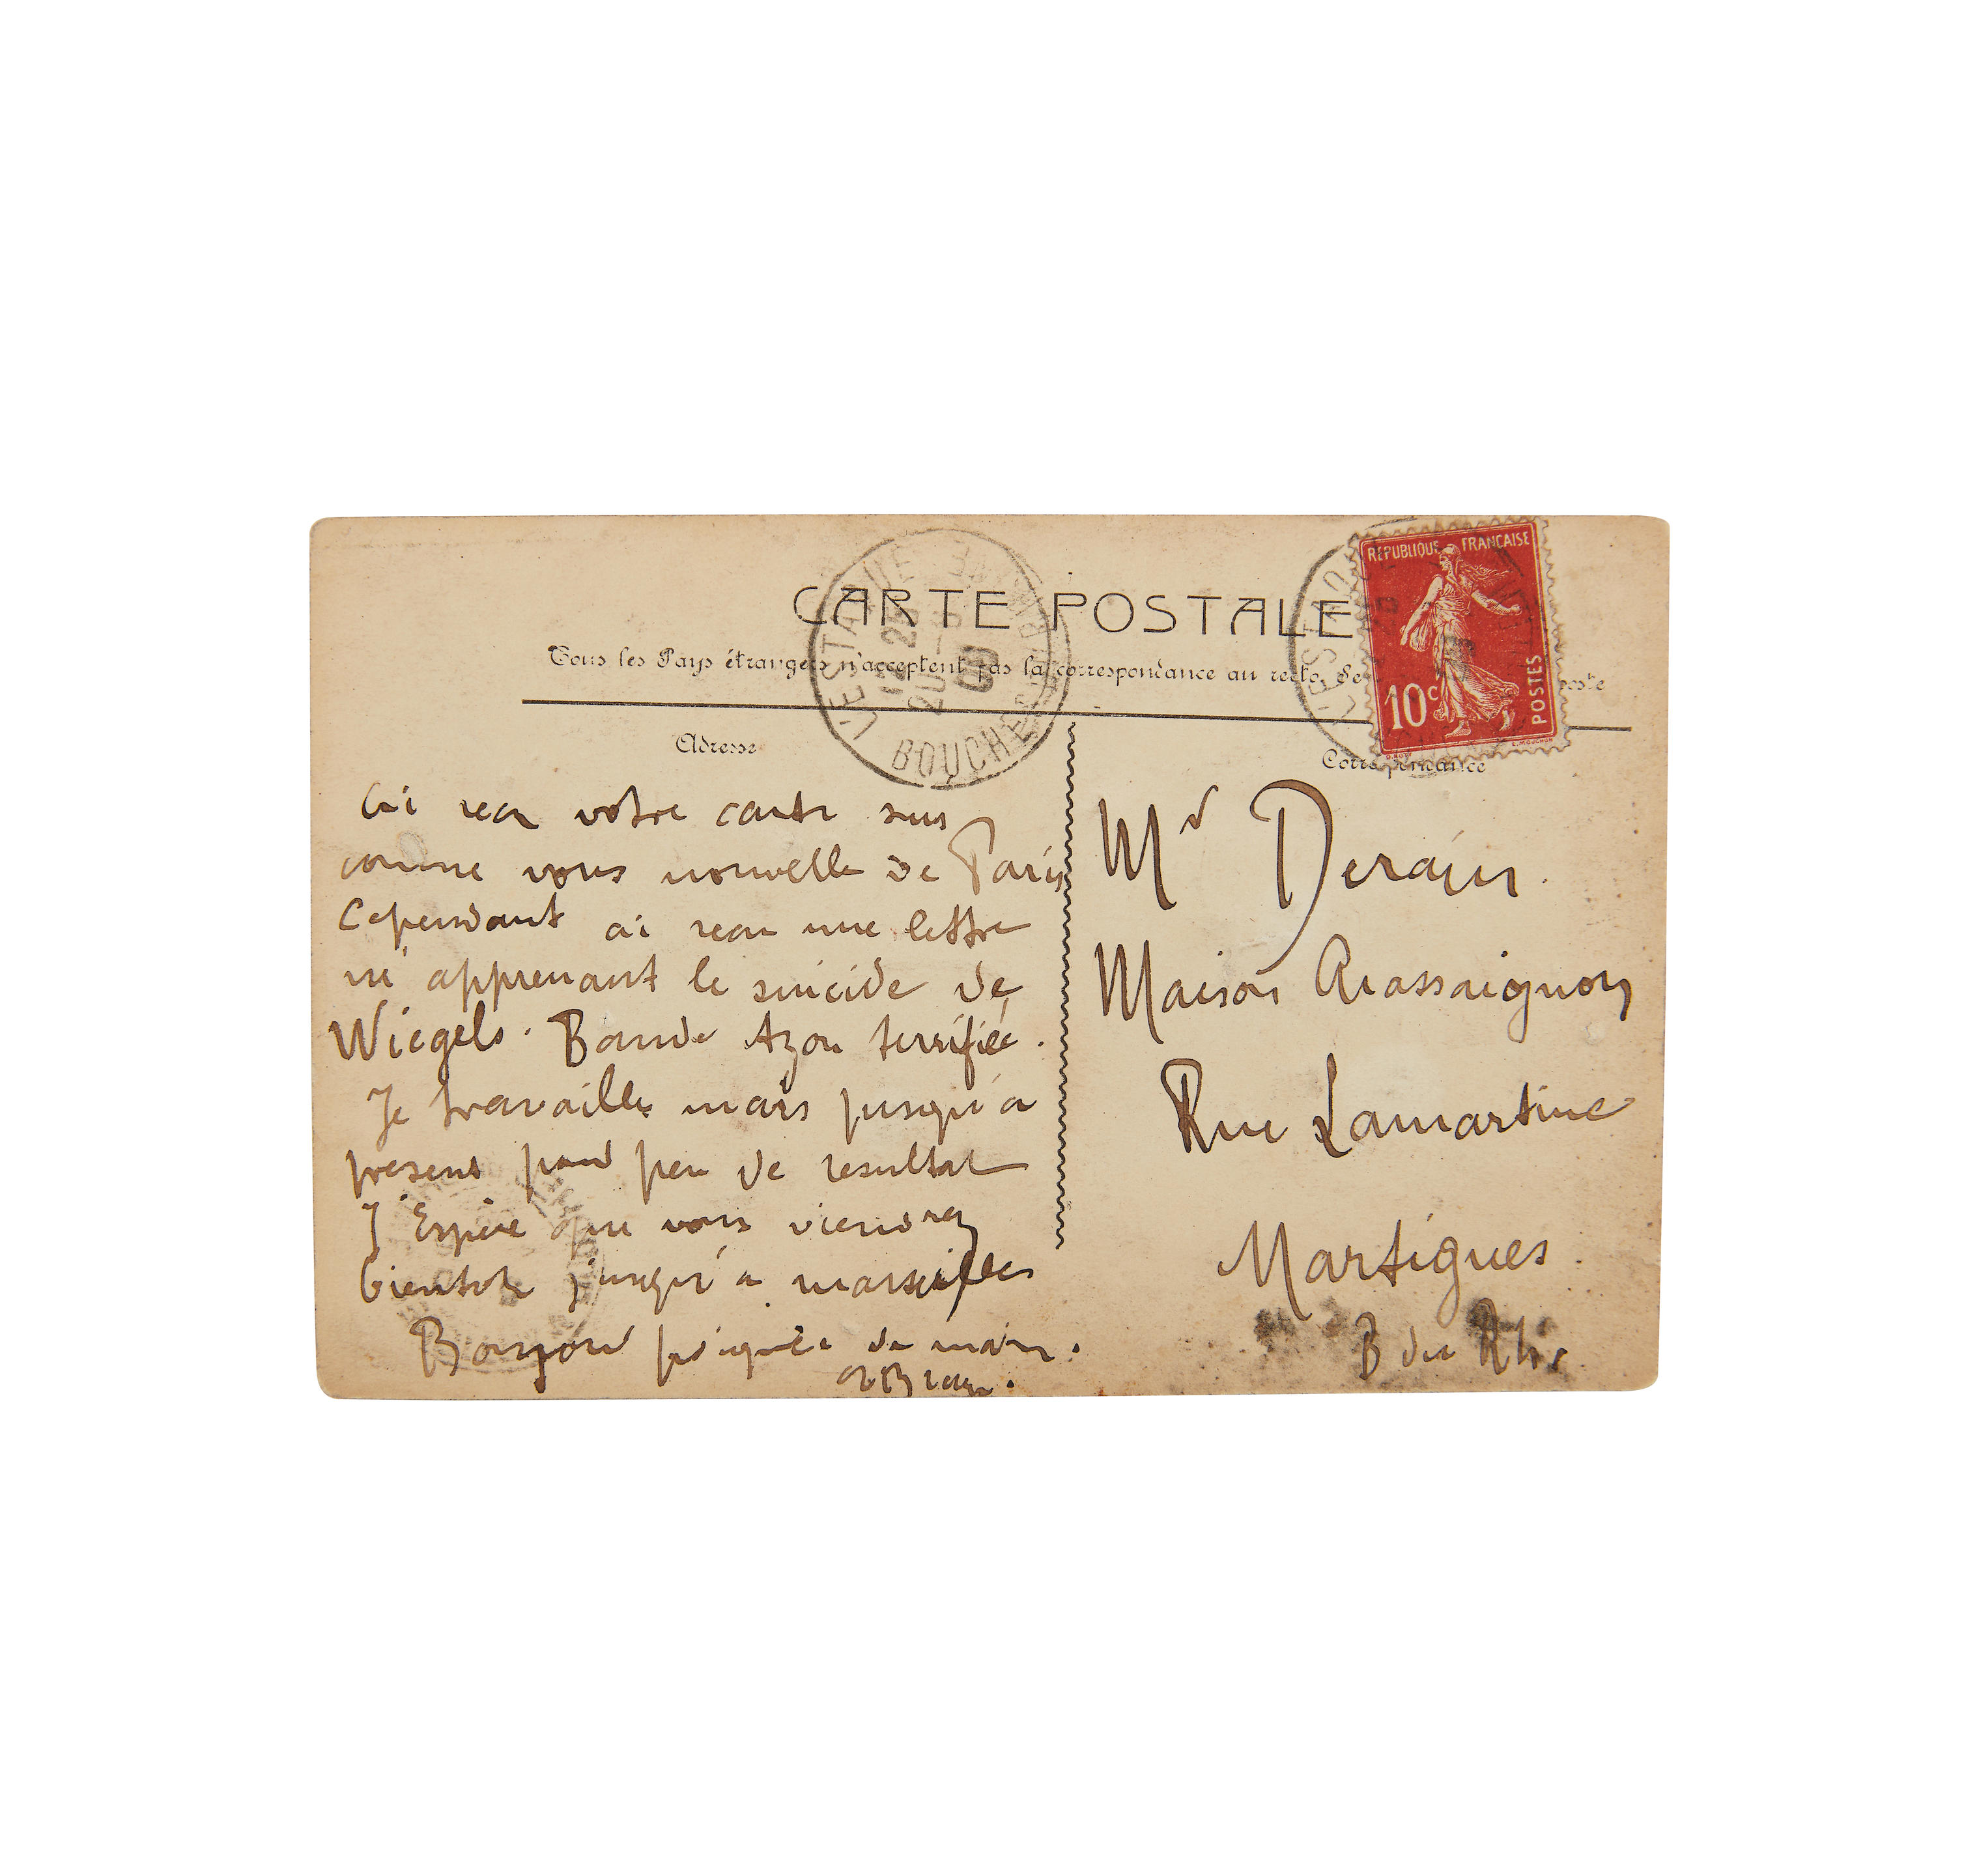 CARTE POSTALE
Tous les Pays étrangers n'acceptent pas la correspondance au recto. Se poste
L'ESTAQUE
12 25
20
BOUCHES
REPUBLIQUE FRANÇAISE
10c
POSTES
L. MOUCHON
Adresse
Correspondance
ai recu votre carte suis
comme vous nouvelle de Paris
Cependant ai recu une lettre
m'apprenant le suicide de
Wiegels. Bande Azon terrifiée.
Je travaille mais jusqu'a
present pour peu de resultat
J'Espere que vous viendrez
bientot jusqu'a marseille
Bonjour poignée de main.
GBraq.
Mr Derain.
Maison
Rue Lamartine
Martigues.
B du Rh